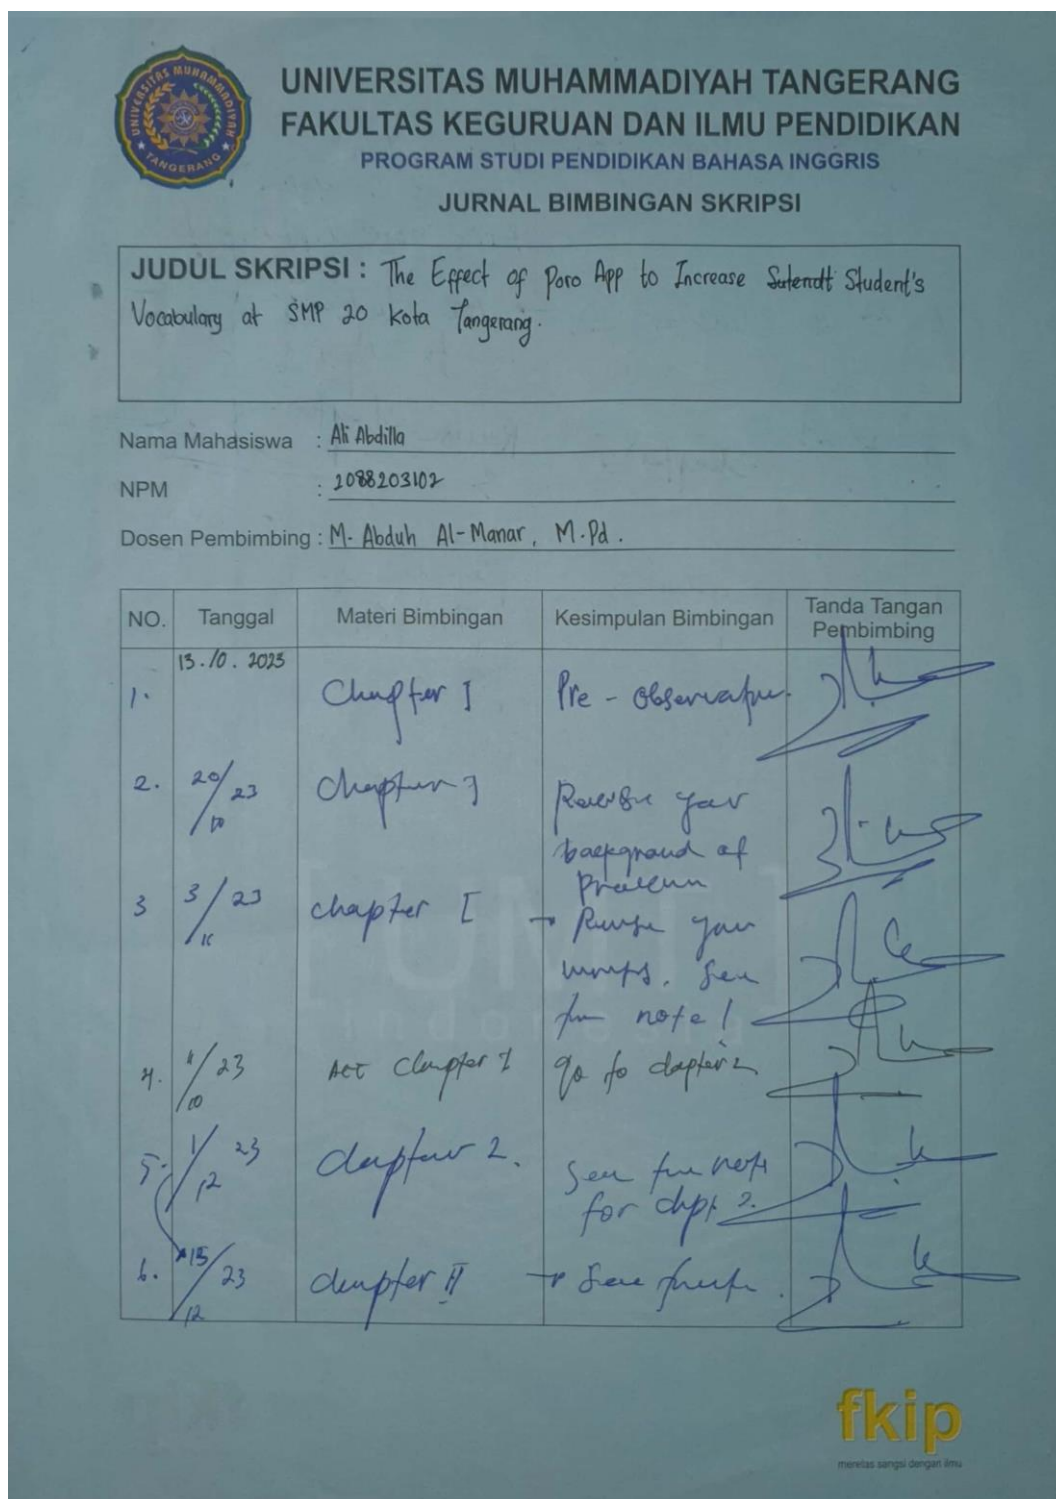 UNIVERSITAS MUHAMMADIYAH TANGERANG
UNIVERSITAS MUHAMMADIYAH TANGERANG
FAKULTAS KEGURUAN DAN ILMU PENDIDIKAN
PROGRAM STUDI PENDIDIKAN BAHASA INGGRIS
JURNAL BIMBINGAN SKRIPSI
JUDUL SKRIPSI : The Effect of Poro App to Increase Student's
Vocabulary at SMP 20 Kota Tangerang.
Nama Mahasiswa : Ali Abdilla
NPM : 2088203102
Dosen Pembimbing : M. Abduh Al-Manar, M.Pd.
NO. Tanggal Materi Bimbingan Kesimpulan Bimbingan Tanda Tangan
Pembimbing
13.10.2023
1. Chapter I Pre - Observation
2. 20/10 23 Chapter I Revise your
background of
problem
3 3/ 23 chapter I → Revise your
See
the note!
4. /23 ACC Chapter I go to chapter 2
5. 1/12 23 chapter 2. See the note
for chpt 2.
6. 15/12 23 chapter II → See
UMT
Indonesia
fkip
meretas sangsi dengan ilmu